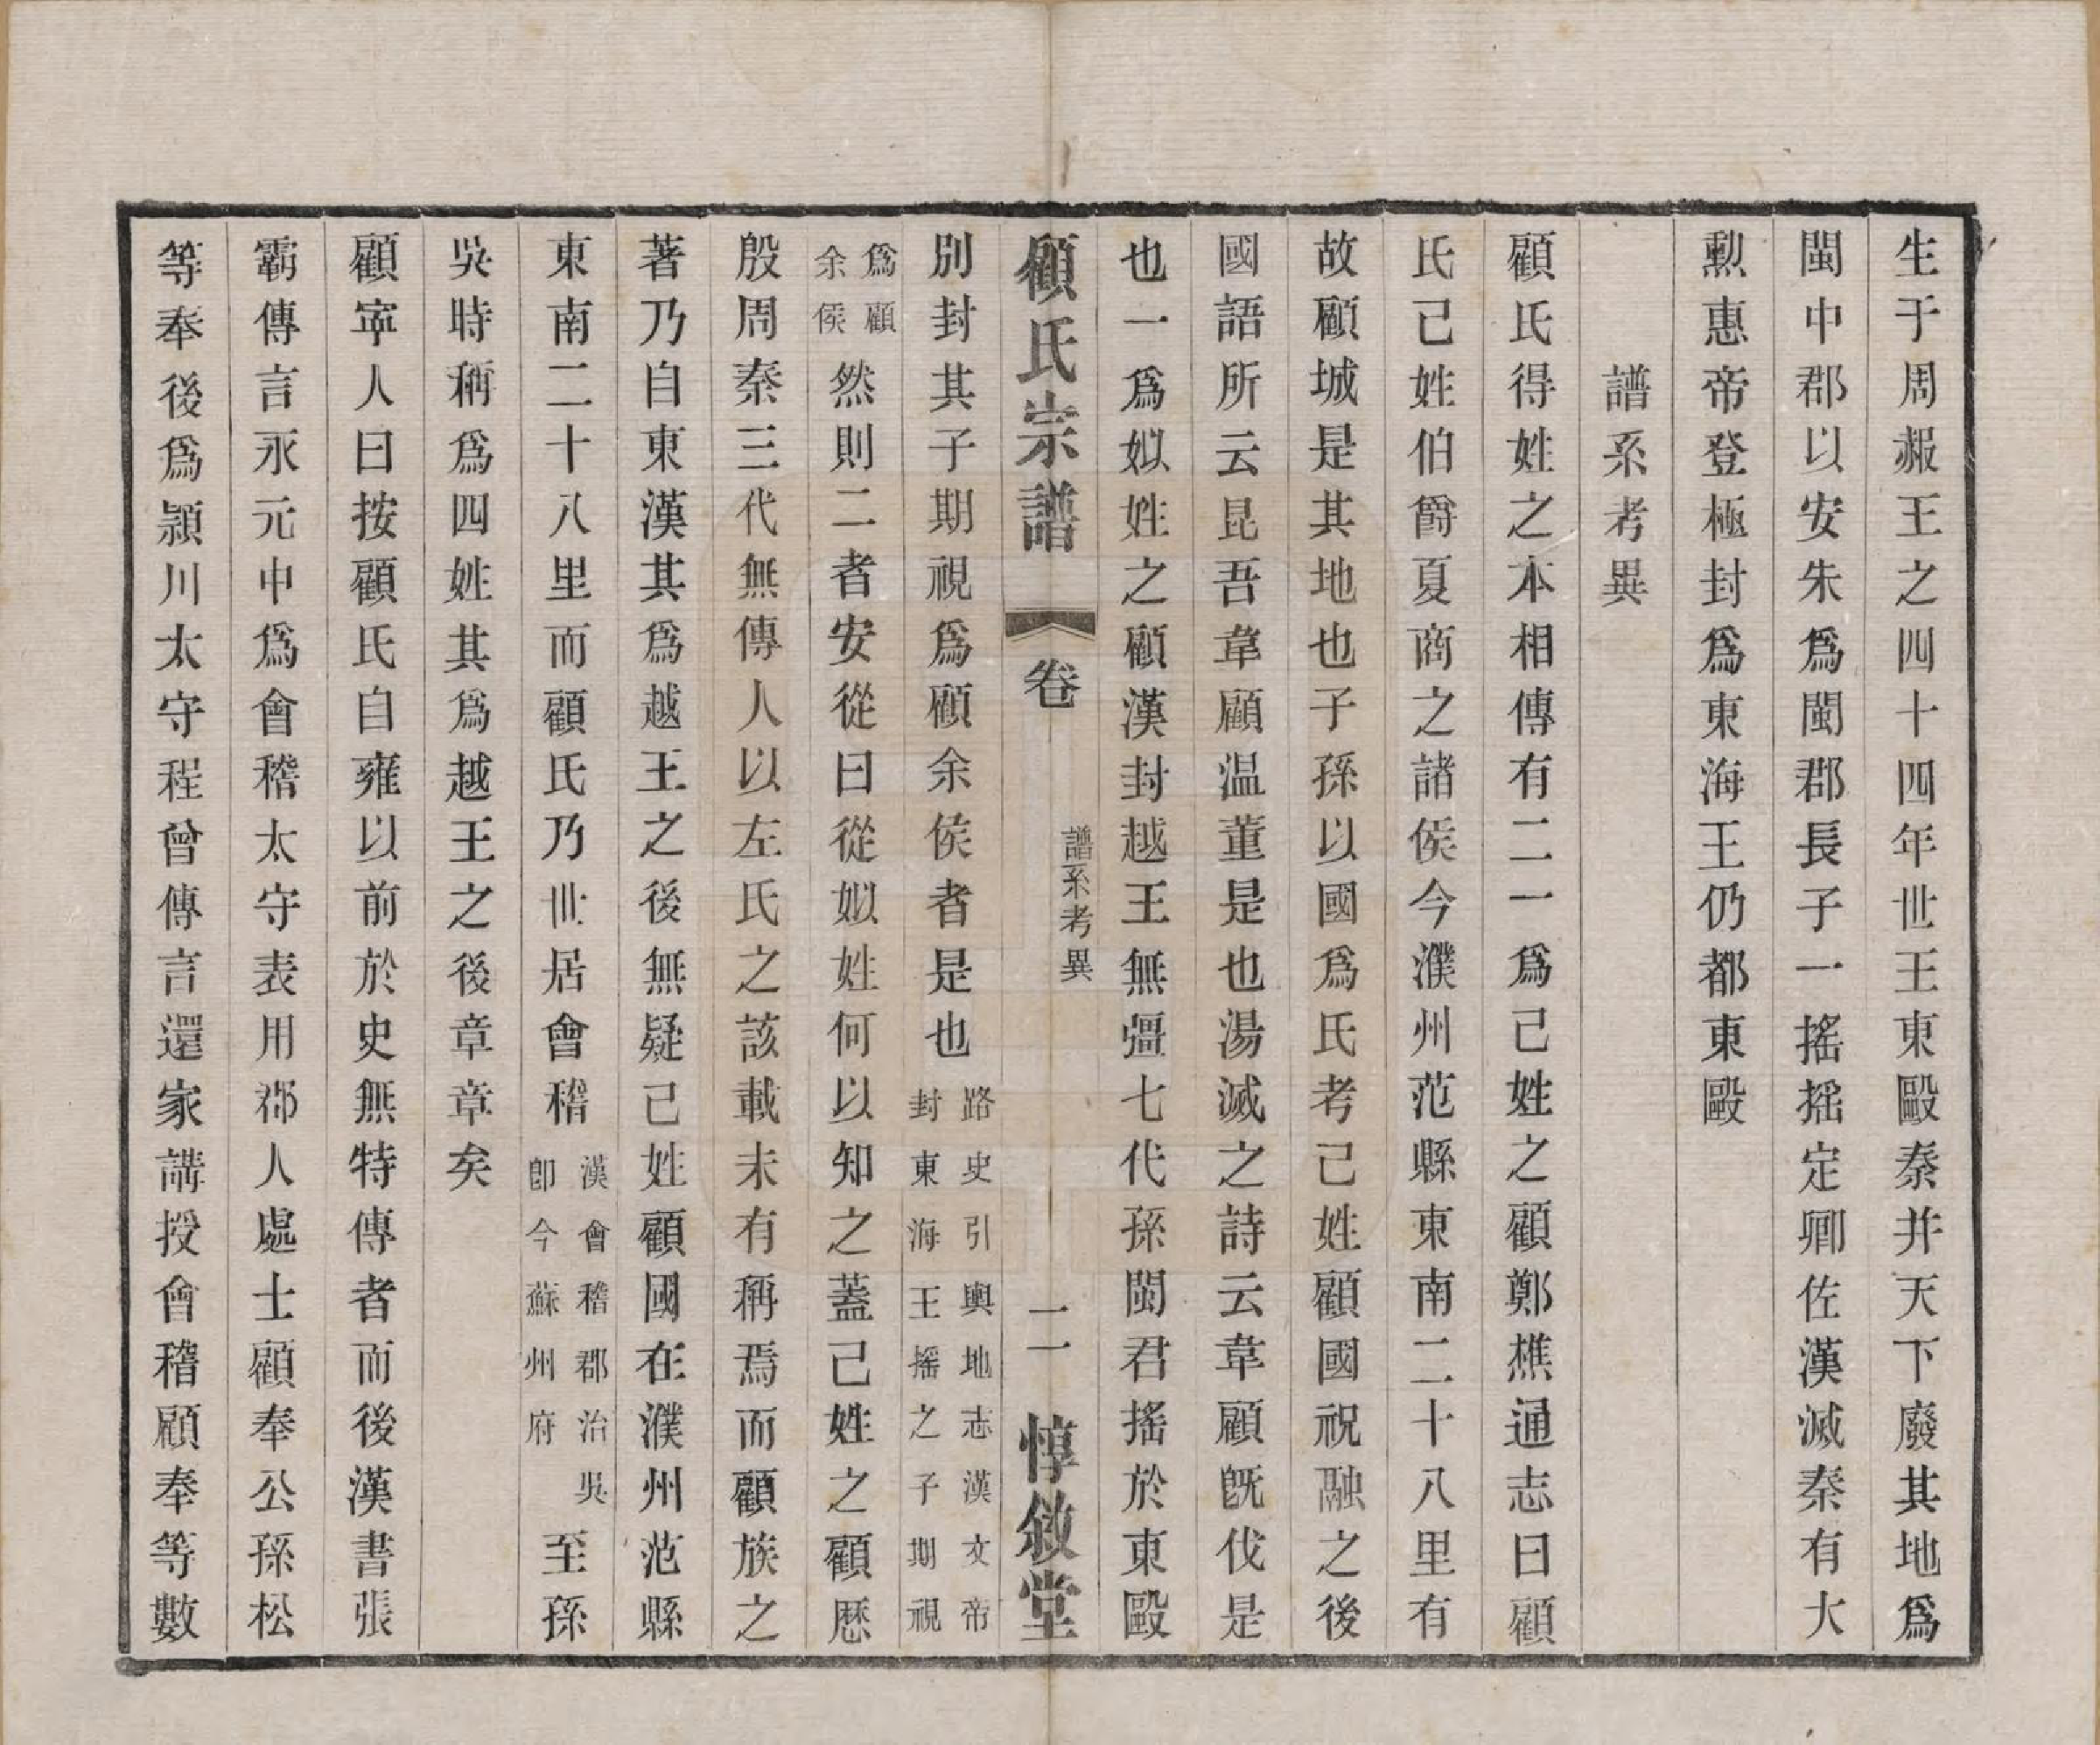 生于周赧王之四十四年世王東毆秦并天下廢其地爲
閩中郡以安朱爲閩郡長子一搖搖定卿佐漢滅秦有大
勲惠帝登極封爲東海王仍都東毆
譜系考異
顧氏得姓之本相傳有二一爲己姓之顧鄭樵通志曰顧
氏己姓伯爵夏商之諸侯今濮州范縣東南二十八里有
故顧城是其地也子孫以國爲氏考己姓顧國祝融之後
國語所云昆吾韋顧温董是也湯滅之詩云韋顧旣伐是
也一爲姒姓之顧漢封越王無彊七代孫閩君搖於東毆
顧氏宗譜 卷 譜系考異 二 惇敘堂
別封其子期視爲顧余侯者是也路史引輿地志漢文帝封東海王搖之子期視
爲顧余侯然則二者安從曰從姒姓何以知之蓋己姓之顧歷
殷周秦三代無傳人以左氏之該載未有稱焉而顧族之
著乃自東漢其爲越王之後無疑己姓顧國在濮州范縣
東南二十八里而顧氏乃世居會稽漢會稽郡治吳卽今蘇州府至孫
吳時稱爲四姓其爲越王之後章章矣
顧寧人曰按顧氏自雍以前於史無特傳者而後漢書張
霸傳言永元中爲會稽太守表用郡人處士顧奉公孫松
等奉後爲潁川太守程曾傳言還家講授會稽顧奉等數